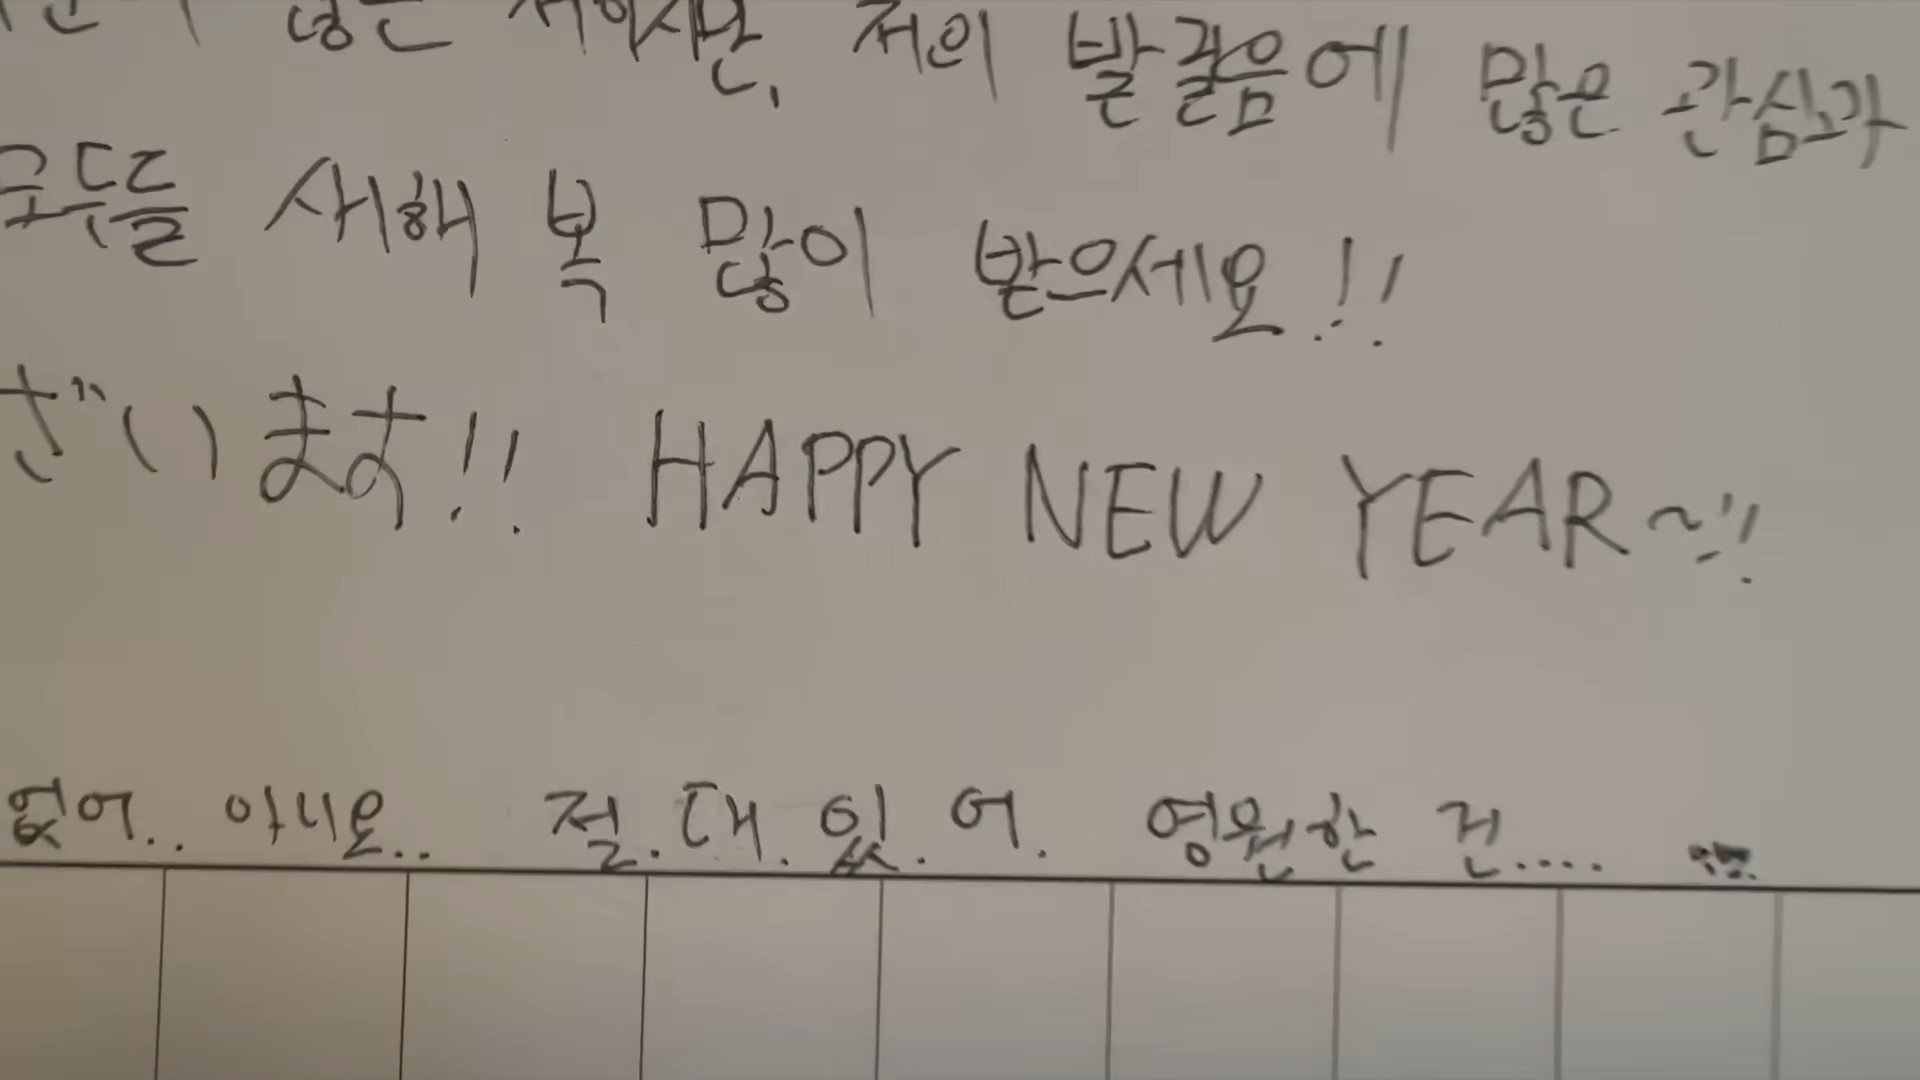 않은 저이지만, 저의 발걸음에 많은 관심과
모두들 새해 복 많이 받으세요!!
ざいます!! HAPPY NEW YEAR~!!
없어.. 아니요.. 절.대.있.어. 영원한 건....